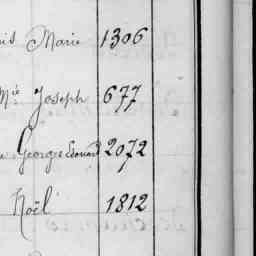 Marie 1306
Mie Joseph 677
Georges Edouard 2072
Noël 1812